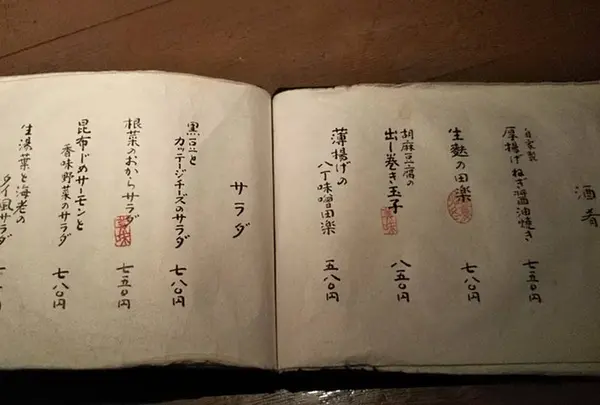 酒肴
自家製
厚揚げねぎ醤油焼き
七五〇円
生麩の田楽
七八〇円
胡麻豆腐の
出し巻き玉子
八五〇円
薄揚げの
八丁味噌田楽
五八〇円
サラダ
黒豆と
カッテージチーズのサラダ
七八〇円
根菜のおからサラダ
七五〇円
昆布じめサーモンと
香味野菜のサラダ
七八〇円
生湯葉と海老の
タイ風サラダ